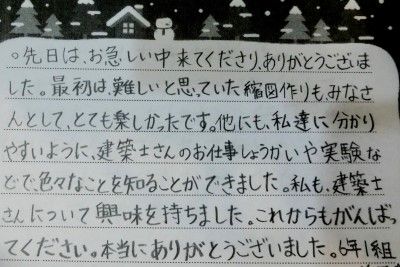 。先日は、お急しい中来てくださり、ありがとうございま
した。最初は、難しいと思っていた縮図作りも、みなさ
んとして、とても楽しかったです。他にも、私達に分かり
やすいように、建築士さんのお仕事しょうかいや実験な
どで色々なことを知ることができました。私も、建築士
さんについて興味を持ちました。これからもがんばっ
てください。本当にありがとうございました。6年1組